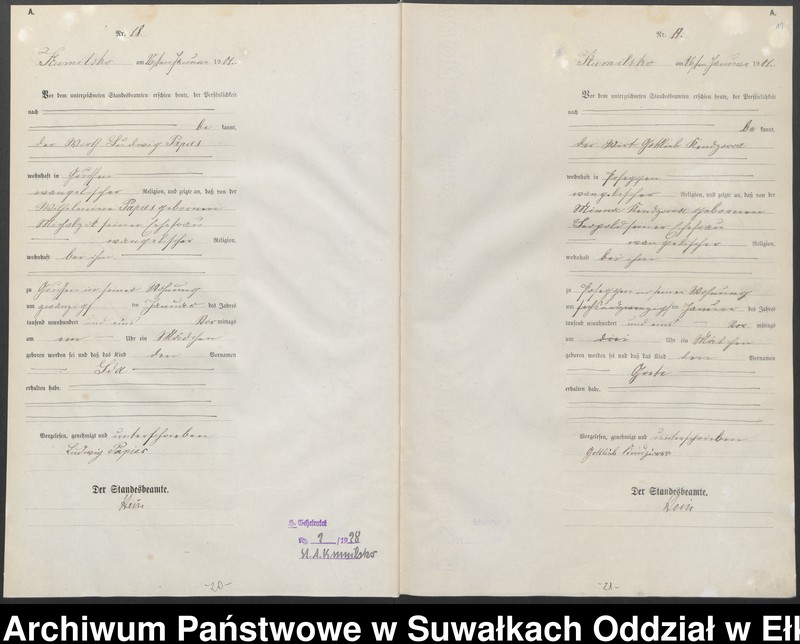 A.
Nr. 18.
Kumilsko am Januar 1901.
Vor dem unterzeichneten Standesbeamten erschien heute, der Persönlichkeit
nach
be kannt,
der Wirth Ludwig Papies
wohnhaft in Guhsen
evangelischer Religion, und zeigte an, daß von der
Wilhelmine Papies geborenen
seiner Ehefrau
evangelischer Religion,
wohnhaft bei ihm
zu Guhsen in seiner Wohnung
am ten Januar des Jahres
tausend neunhundert und eins Vor mittags
um ein Uhr ein Mädchen
geboren worden sei und daß das Kind den Vornamen
Ida
erhalten habe.
Vorgelesen, genehmigt und unterschrieben
Ludwig Papies
Der Standesbeamte.
Nr. 2 /1928
St. A. Kumilsko
-20-
A.
19
Nr. 19.
Kumilsko am Januar 1901.
Vor dem unterzeichneten Standesbeamten erschien heute, der Persönlichkeit
nach
be kannt,
der Wirt Gottlieb Kendziorra
wohnhaft in
evangelischer Religion, und zeigte an, daß von der
Minna geborenen
Leopold seiner Ehefrau
evangelischer Religion,
wohnhaft bei ihm
zu in seiner Wohnung
am Januar des Jahres
tausend neunhundert und eins Vor mittags
um drei Uhr ein Mädchen
geboren worden sei und daß das Kind den Vornamen
Grete
erhalten habe.
Vorgelesen, genehmigt und unterschrieben
Gottlieb
Der Standesbeamte.
-21-
Archiwum Państwowe w Suwałkach Oddział w Ełk